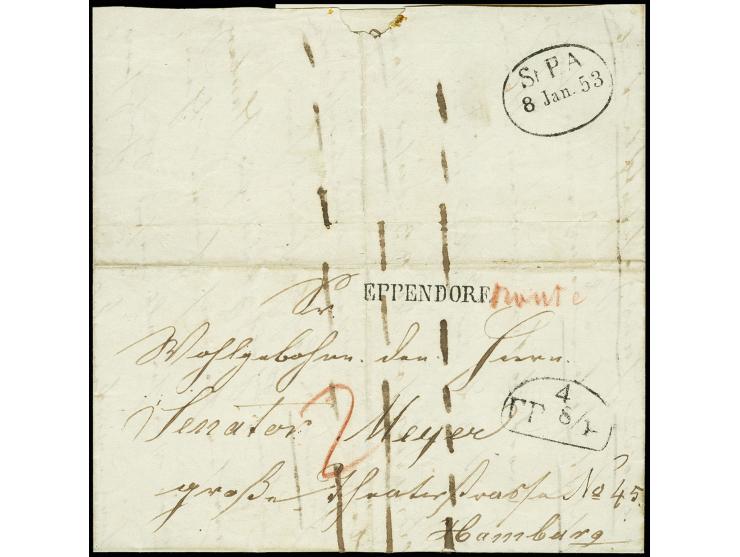 St P. A
8 Jan. 53
EPPENDORF
Sr
Wohlgebohrn. den Herrn
4
Senator 2 Meyer
große Theaterstrasse No 45.
Hamburg